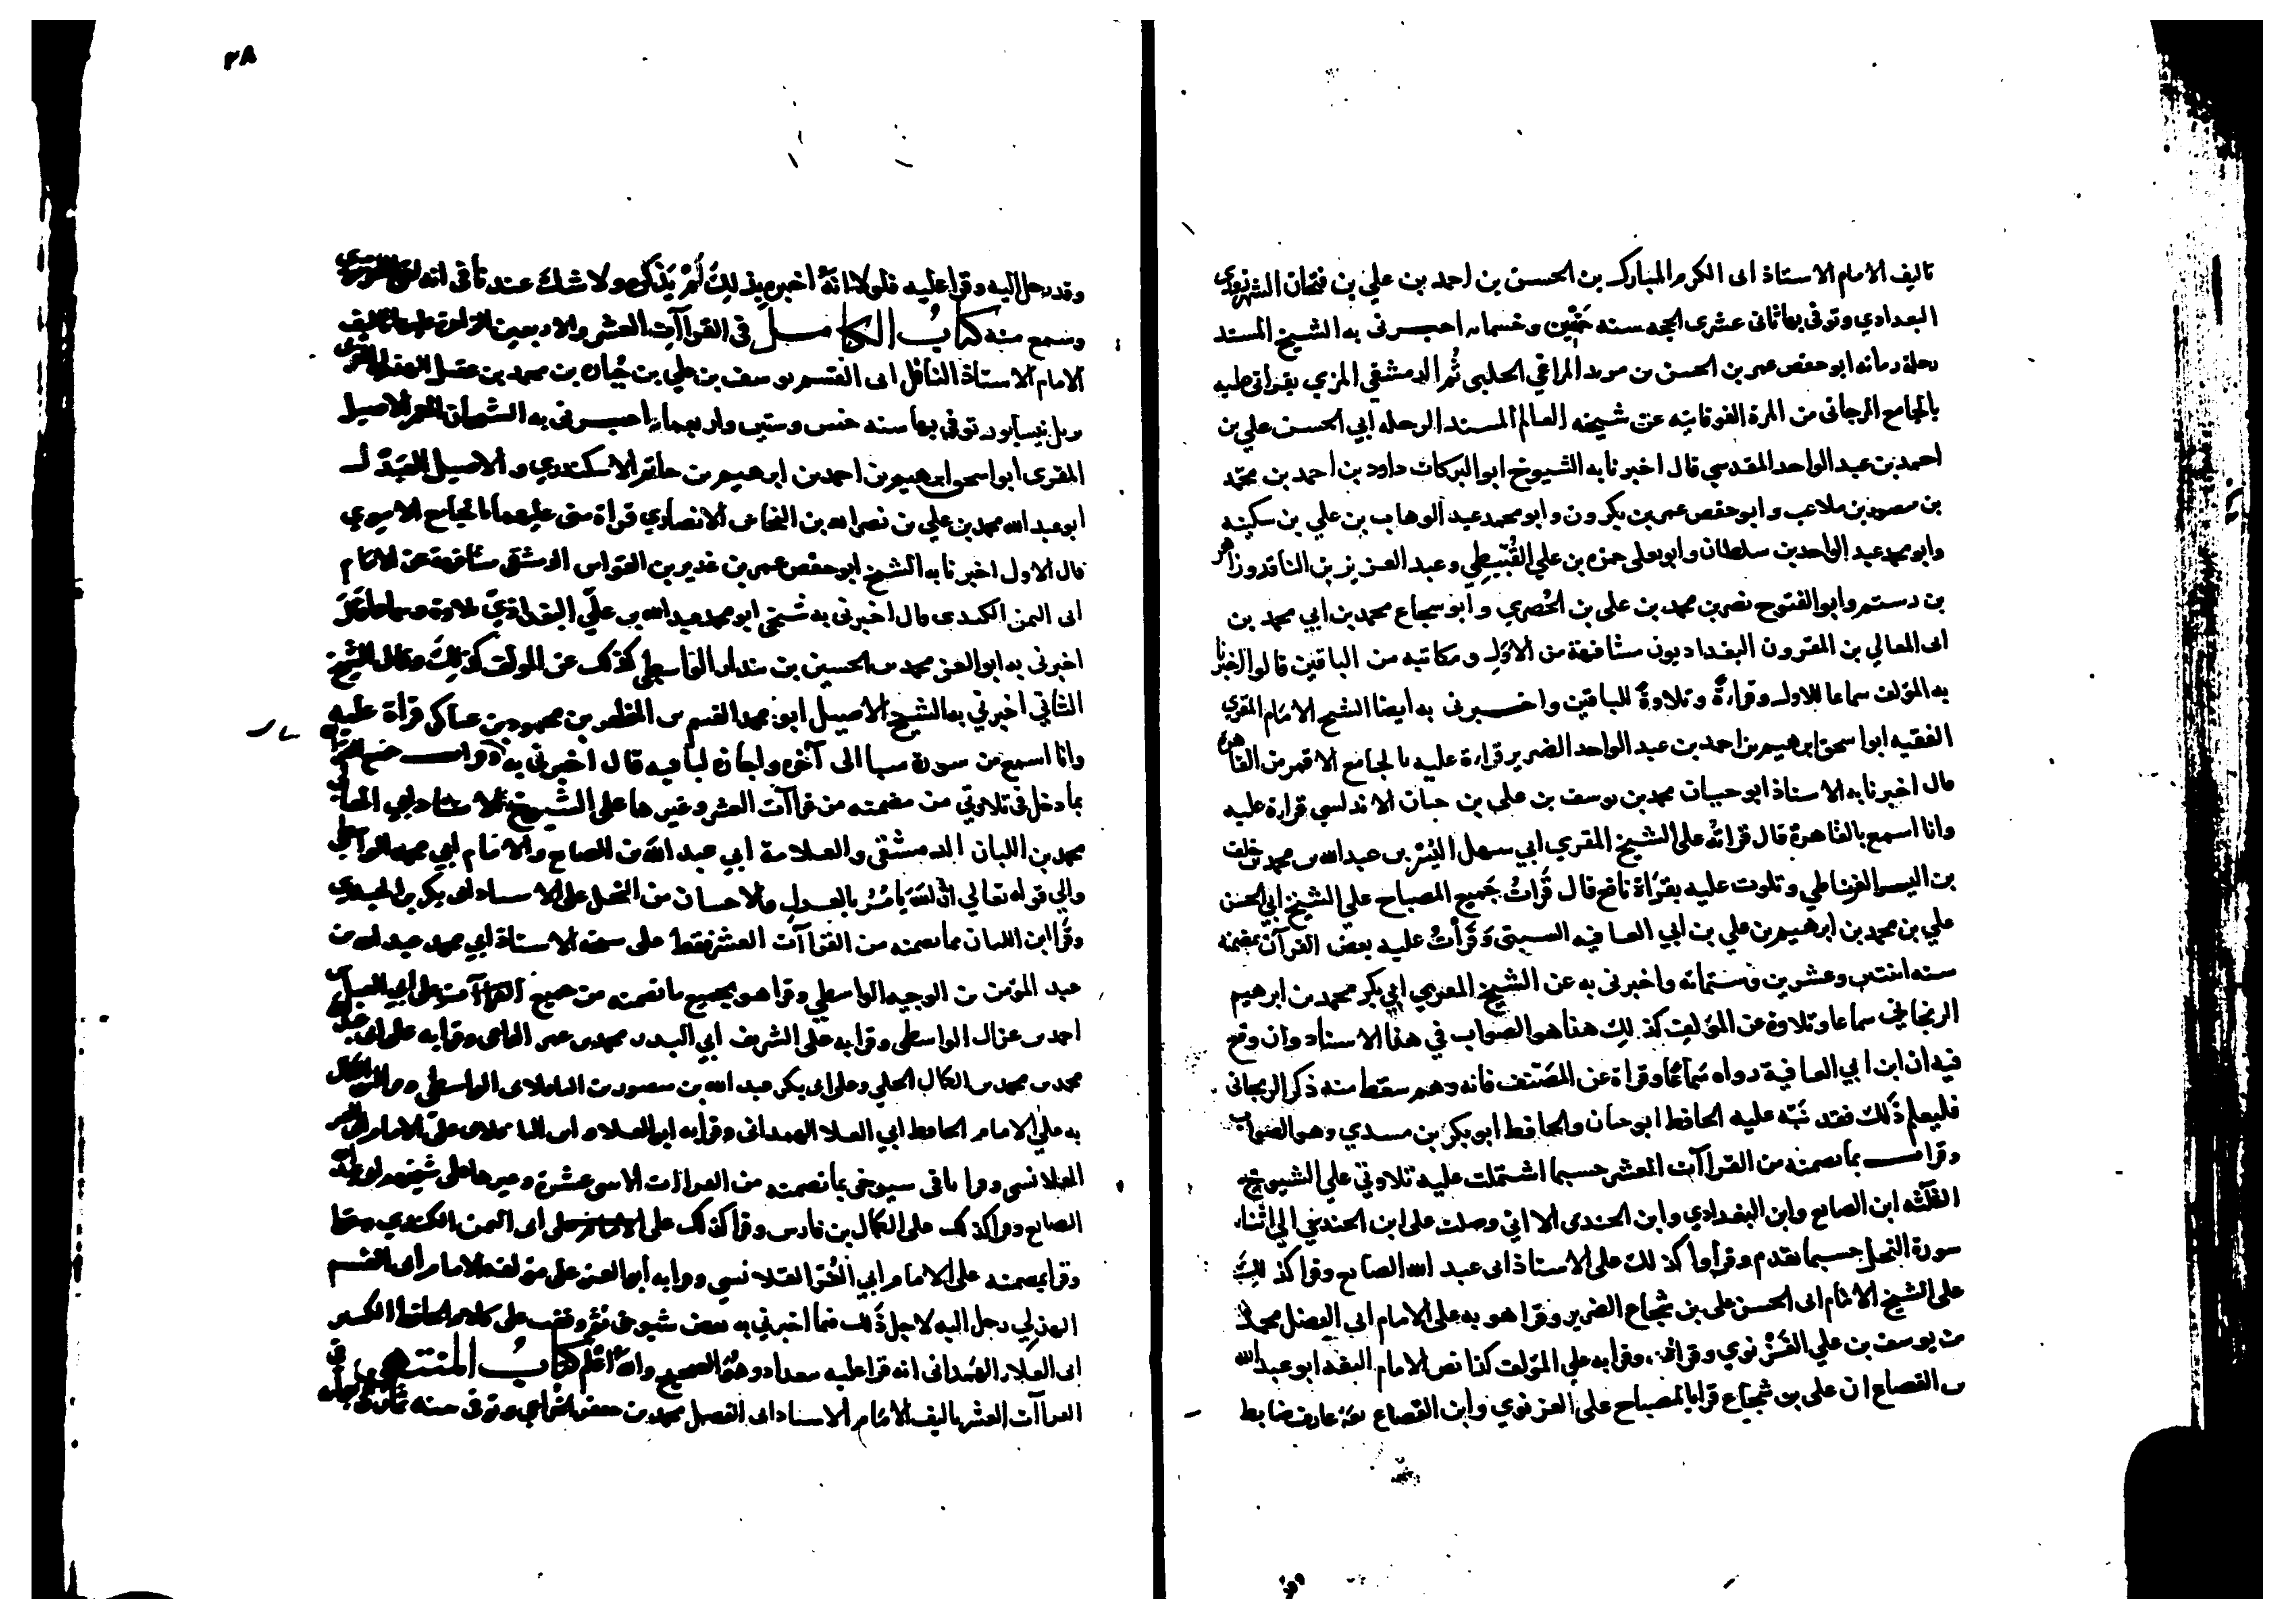 تاليف الامام الاستاذ ابى الكرم المبارك بن الحسن بن احمد بن علي بن فتحان الشهرزوري
البغدادي وتوفى بها ثانى عشرى الحجه سنه خمسين وخمسمايه اخبرنى به الشيخ المسند
رحلة زمانه ابو حفص عمر بن الحسن بن مزيد المراغي الحلبى ثُم الدمشقي المزي بقراتى عليه
بالجامع المرجانى من المزة الفوقانيه عن شيخه العالم المسند الرحله أبي الحسن علي بن
احمد بن عبد الواحد المقدسي قال اخبرنا به الشيوخ ابو البركات داود بن احمد بن محمّد
بن منصور بن ملاعب وابو حفص عمر بن بكرون وابو محمد عبد الوهاب بن علي بن سكينه
وابو محمد عبد الواحد بن سلطان وابو يعلى حمزه بن علي القُبّيطي وعبد العزيز بن الناقد وزاهر
بن رستم وابو الفتوح نصر بن محمد بن على بن الحُصري وأبو شجاع محمد بن أبي محمد بن
ابى المعالي بن المقرون البغداديون مشافهة من الاوّلِ ومكاتبه من الباقين قالوا اخبرنا
به المؤلف سماعا للاول وقراءةً وتلاوةً للباقين واخبرنى به أيضا الشيخ الامام المقري
الفقيه ابو اسحق ابرهيم بن احمد بن عبد الواحد الضرير قراءة عليه بالجامع الاقمر من القاهرة
قال اخبرنا به الاستاذ ابو حيان محمد بن يوسف بن على بن حيان الاندلسي قراءة عليه
وانا اسمع بالقاهرة قال قراتُه على الشيخ المقري ابي سهل اليُسْر بن عبد الله بن محمد بن خلف
بن اليسر الغرناطي وتلوت عليه بقرَاة نافع قال قَراتُ جَميع المصباح علي الشيخ ابي الحسن
علي بن محمد بن ابرهيم بن علي بن ابي العافيه السبتى وَقَرأتُ عليه بعض القرآن بمضمنه
سنه اثنتين وعشرين وستمائه واخبرنى به عن الشيخ المقري أبي بكر محمد بن ابرهيم
الزنجاني سماعا وتلاوة عن المؤلف كذلك هذا هو الصواب في هذا الاسناد وان وقع
فيه ان ابن ابي العافية رواه سَماعًا وقراة عن المصَنف فانه وهم سقط منه ذكر الزنجانى
فليعلم ذَلك فقد نَبّه عليه الحافظ ابو حيان والحافظ ابو بكر بن مسدي وهو الصواب
وقرات بما تضمنه من القراآت العشر حسبما اشتملت عليه تلاوتي علي الشيوخ
الثلثه ابن الصايغ وابن البغدادي وابن الجندى الا اني وصلت على ابن الجندي الي اثناء
سورة النحل حسبما تقدم وقرأوا كذلك على الاستاذ ابى عبد الله الصايغ وقرا كذلك
على الشيخ الامام ابى الحسن على بن شجاع الضرير وقرا هو به على الامام ابى الفضل محمد
بن يوسف بن علي الغَزْنوي وقرا به علي المؤلف كذا نص الامام الثقه ابو عبد الله
بن القصاع ان على بن شجاع قرا بالمصباح على الغزنوي وابن القصاع ثقة عارف ضابط
٢٨
وقد رحل اليه وقرا عليه فلولا انهُ اخبره بذلك لَمْ يَذكره ولا شك عندنا فى انه
وسمع منه كتابُ الكامل فى القراآت العشر والاربعين الزايدة عليها تاليف
الامام الاستاذ الناقل ابى القسم يوسف بن علي بن جُبارة بن محمد بن عقيل الهذلى المغربى
نزيل نيسابور توفى بها سنه خمس وستين واربعمايه اخبرنى به الشيخان الاصيل
المقرى ابو اسحق ابرهيم بن احمد بن ابرهيم بن حاتم الاسكندري والاصيل العَدْل
ابو عبد الله محمد بن علي بن نصر الله بن النحاس الانصاري قراة منى عليهما بالجامع الاموي
قال الاول اخبرنا به الشيخ ابو حفص عمر بن غدير بن القواس الدمشقى مشافهة عن الامام
ابى اليمن الكندى قال اخبرنى به شيخي ابو محمد عبد الله بن عليّ البغداذيّ تلاوة وسماعا قال
اخبرنى به ابو العز محمد بن الحسين بن بندار الواسطي كذلك عن المولف كذلك وقال الشيخ
الثاني اخبرني به الشيخ الاصيل ابو محمد القسم بن المظفر بن محمود بن عساكر قراة عليه
وانا اسمع من سورة سبا الى آخره واجازة لباقيه قال اخبرنى به
بما دخل فى تلاوتي من مضمنه من قراآت العشر وغيرها على الشيوخ الاستاذ ابي المعالى
محمد بن اللبان الدمشقى والعلامة ابي عبد الله بن الصايغ والامام أبي محمد الواسطي
والي قوله تعالي ان الله يامُرُ بالعدل والاحسان من النحل على الاستاذ ابى بكر بن الجندى
وقرا ابن اللبان بما تضمنه من القراآت العشر فقط على شيخه الاستاذ ابي محمد عبد الله بن
عبد المؤمن بن الوجيه الواسطي وقرا هو بجميع ما تضمنه من جميع القراآت على أبي العباس
احمد بن غزال الواسطى وقرا به على الشريف ابي البدر محمد بن عمر الداعى وقرا به على ابى عبد الله
محمد بن محمد بن الكال الحلي وعلى ابى بكر عبد الله بن منصور بن الباقلانى الواسطى وقرا ابن الكال
به علي الامام الحافظ ابي العلا الهمدانى وقرا به ابو العلا وابن الباقلانى على الامام ابى العز
القلانسى وقرا باقى شيوخى بما تضمنه من القراات الاثنى عشرة وغيرها على شيخهم ابى عبد الله
الصايغ وقرا كذلك على الكمال بن فارس وقرا كذلك على ابى اليمن الكندي وقرا
وقرا بمضمنه على الامام ابي العُز القلانسي وقرا به أبو العز على مؤلفه الامام ابى القسم
الهذلي رحل اليه لاجل ذَلك فيما اخبرني به بعض شيوخى ثم وقفت على كلام الحافظ الكبير
ابى العلاء الهَمدانى انه قرا عليه ببغداد وهوُ الصحيح واللهُ اعْلم كتابُ المنتهى فى
القراآت العشر تاليف الامام الاستاذ ابى الفضل محمد بن جعفر الخزاعي وتوفى سنه ثمان واربعمايه